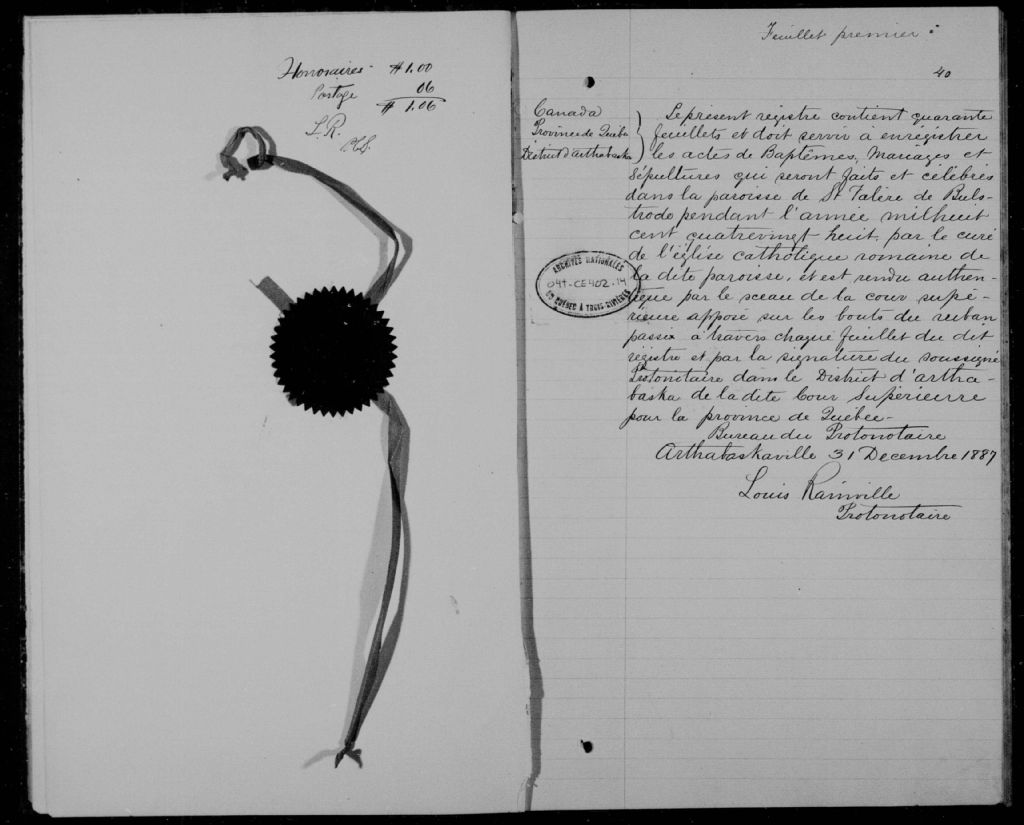 Honoraires - $1.00
Postage 06
$1.06
L.R.
Feuillet premier :
40
Canada
Province de Québec
District d'arthabaska
Le présent régistre contient quarante
feuillets et doit servir à enrégistrer
les actes de Baptêmes, Mariages et
Sépultures qui seront faits et célébrés
dans la paroisse de St Valère de Buls-
trode pendant l'année milhuit
cent quatrevingt huit, par le curé
de l'église catholique romaine de
la dite paroisse, et est rendu authen-
tique par le sceau de la cour supé-
rieure apposé sur les bouts du ruban
passé à travers chaque feuillet du dit
régistre et par la signature du soussigné
Protonotaire dans le District d'artha-
baska de la dite Cour Supérieurre
pour la province de Québec -
Bureau du Protonotaire
Arthabaskaville 31 Decembre 1887
Louis Rainville
Protonotaire
ARCHIVES NATIONALES
04T-CE402-14
DU QUÉBEC À TROIS-RIVIÈRES